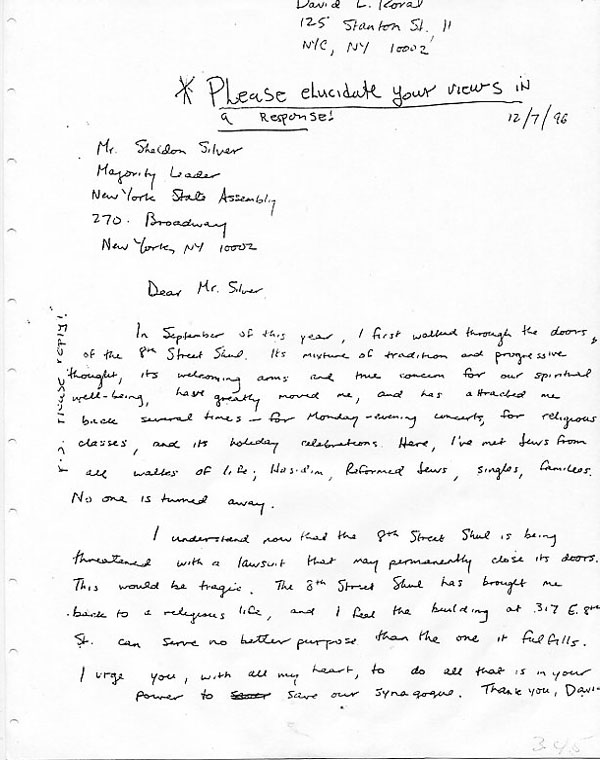 David L. Koral
125 Stanton St. 11
NYC, NY 10002
* Please elucidate your views in
a response!
12/7/96
Mr. Sheldon Silver
Majority Leader
New York State Assembly
270 Broadway
New York, NY 10002
Dear Mr. Silver
In September of this year, I first walked through the doors
of the 8th Street Shul. Its mixture of tradition and progressive
thought, its welcoming arms and true concern for our spiritual
well-being, have greatly moved me, and has attracted me
back several times - for Monday-evening concerts, for religious
classes, and its holiday celebrations. Here, I've met Jews from
all walkes of life; Hasidim, Reformed Jews, singles, families.
No one is turned away.
I understand now that the 8th Street Shul is being
threatened with a lawsuit that may permanently close its doors.
This would be tragic. The 8th Street Shul has brought me
back to a religious life, and I feel the building at 317 E. 8th
St. can serve no better purpose than the one it fulfills.
I urge you, with all my heart, to do all that is in your
power to save our synagogue. Thank you, Davi
P.S. Please reply!
345